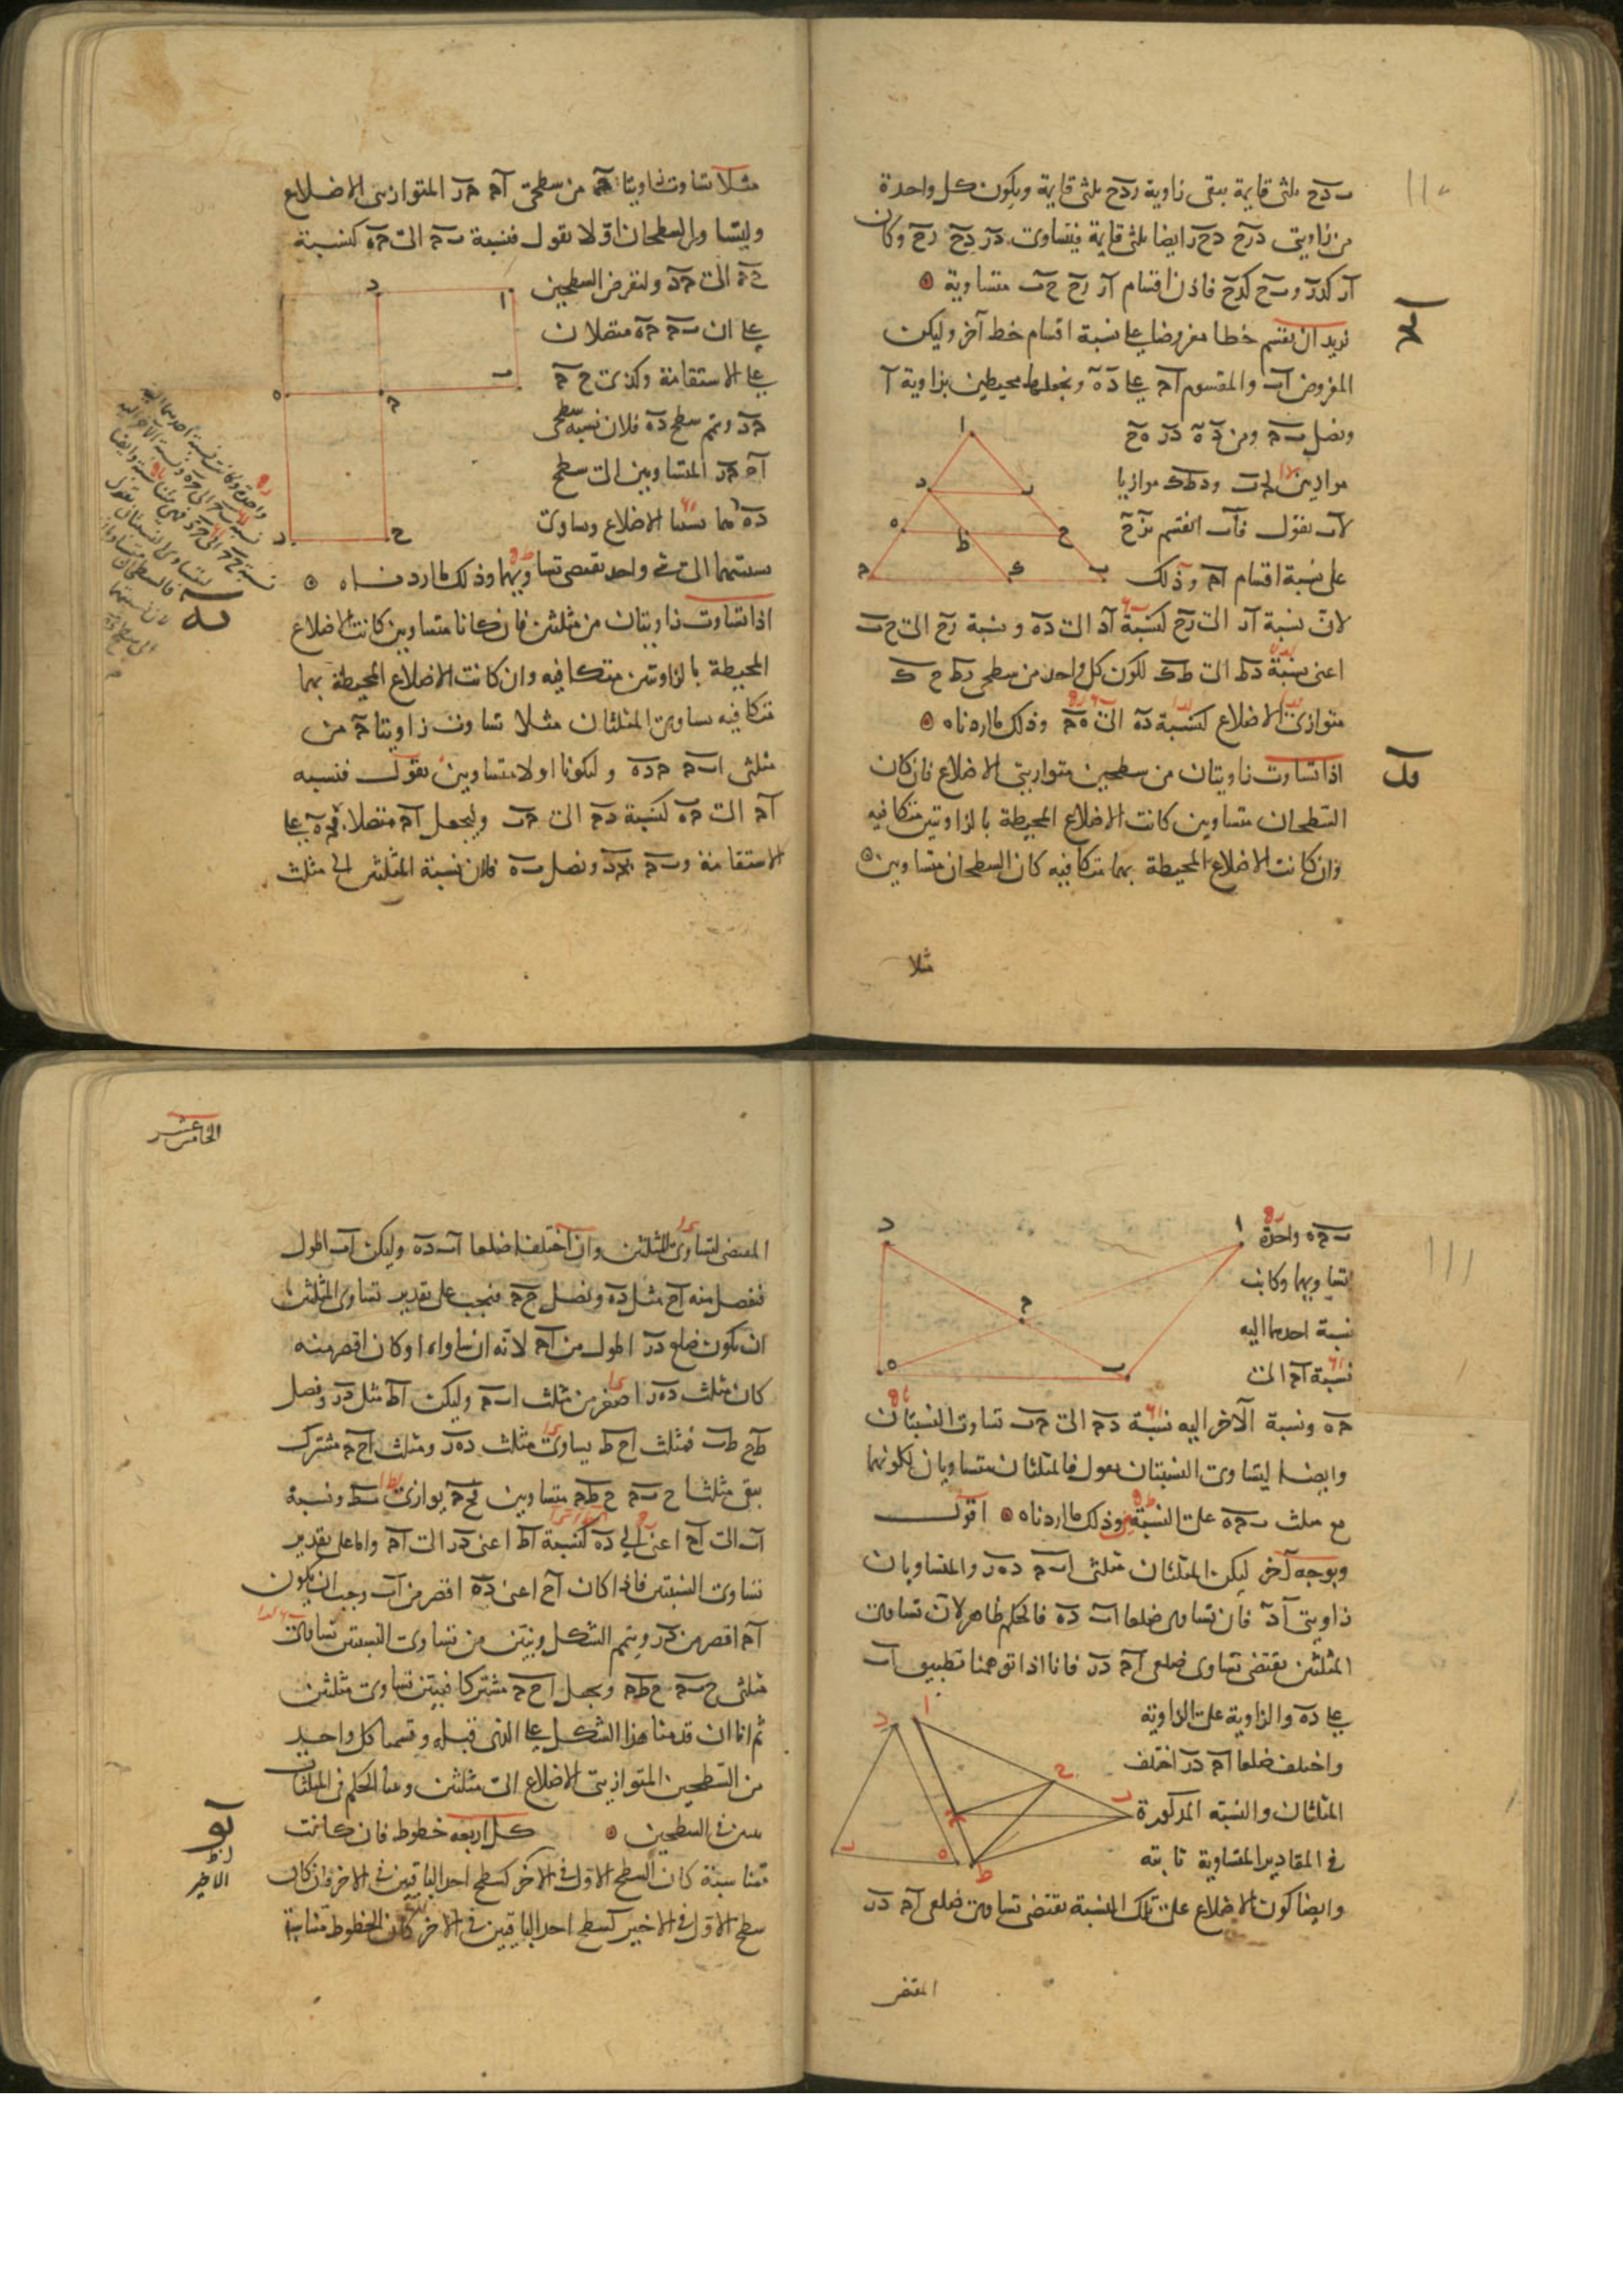 ١١٠
ب د ح ثلثى قايمة يبقى زاوية ر د ح ثلثى قايمة ويكون كل واحدة
من زاويتى د ر ح د ح ر ايضا ثلثى قايمة فيتساوى د ر د ح ر ح وكان
ا ر كد ر و ب ح كد ح فاذن اقسام ا ر ر ح ح ب متساوية
نريد ان نقسم خطا مفروضا على نسبة اقسام خط آخر وليكن
المفروض ا ب والمقسوم ا ج على د ه ونجعلهما محيطين بزاوية ا
ونصل ب ج ومن د ه د ر ه ح
موازيين لج ب و د ط ك موازيا
لا ب نقول فا ب انقسم بر ح
على نسبة اقسام ا ج وذلك
لان نسبة ا ر الى ر ح كنسبة ا د الى د ه و نسبة ر ح الى ح ب
اعنى نسبة د ط الى ط ك لكون كل واحد من سطحى ر ط ح ك
متوازى الاضلاع كنسبة د ه الى ه ج وذلك ما اردناه
اذا تساوت زاويتان من سطحين متوازيى الاضلاع فان كان
السطحان متساويين كانت الاضلاع المحيطة بالزاويتين متكافيه
وان كانت الاضلاع المحيطة بهما متكافيه كان السطحان متساويين
مثلا
مثلا تساوت زاويتا ج من سطحى ا ج ج ر المتوازيى الاضلاع
وليتساو السطحان اولا نقول فنسبة ب ج الى ج ه كنسبة
ح ج الى ج د ولنفرض السطحين
على ان ب ج ج ه متصلان
على الاستقامة وكذى ح ج
ج د ونتم سطح د ه فلان نسبة سطحى
ا ج ج ر المتساويين الى سطح
د ه هما نسبتا الاضلاع وتساوى
نسبتهما الى شى واحد تقتضى تساويهما وذلك ما اردناه
يه
اذا تساوت زاويتان من مثلثين فان كانا متساويين كانت الاضلاع
المحيطة بالزاويتين متكافيه وان كانت الاضلاع المحيطة بهما
متكافيه تساوى المثلثان مثلا تساوت زاويتا ج من
مثلثى ا ب ج ج د ه وليكونا اولا متساويين نقول فنسبة
ا ج الى ج ه كنسبة د ج الى ج ب وليجعل ا ج متصلا بج ه على
الاستقامة و ب ج بج د ونصل ب ه فلان نسبة المثلثين الى مثلث
١١١
ب ج ه واحدة
لتساويهما وكانت
نسبة احدهما اليه
نسبة ا ج الى
ج ه ونسبة الآخر اليه نسبة د ج الى ج ب تساوى النسبتان
وايضا ليتساوى النسبتان نقول فالمثلثان متساويان لكونهما
مع مثلث ب ج ه على النسبة وذلك ما اردناه اقول
وبوجه آخر ليكن المثلثان مثلثى ا ب ج د ه ر والمتساويان
زاويتى ا د فان تساوى ضلعا ا ب د ه فالحكم ظاهر لان تساوى
المثلثين يقتضى تساوى ضلعى ا ج د ر فانا اذا توهمنا تطبيق ا ب
على د ه والزاوية على الزاوية
واختلف ضلعا ا ج د ر اختلف
المثلثان والنسبة المذكورة
فى المقادير المتساوية ثابته
وايضا كون الاضلاع على تلك النسبة يقتضى تساوى ضلعى ا ج د ر
المقتضى
الخامس عشر
المقتضى لتساوى المثلثين وان اختلف ضلعا ا ب د ه وليكن ا ب اطول
فنفصل منه ا ح مثل د ه ونصل ح ج فيجب على تقدير تساوى المثلثين
ان يكون ضلع د ر اطول من ا ج لانه ان ساواه او كان اقصر منه
كان مثلث د ه ر اصغر من مثلث ا ب ج وليكن ا ط مثل د ر ونصل
ط ح ط ب فمثلث ا ح ط يساوى مثلث د ه ر ومثلث ا ح ج مشترك
يبقى مثلثا ح ب ج ح ط ج متساويين فح ج يوازى ب ط ونسبة
ا ب الى ا ح اعنى الى د ه كنسبة ا ط اعنى د ر الى ا ج واما على تقدير
تساوى النسبتين فاذا كان ا ح اعنى د ه اقصر من ا ب وجب ان يكون
ا ج اقصر من د ر ونتمم الشكل ونبين من تساوى النسبتين تساوى
مثلثى ح ب ج ح ط ج ونجعل ا ح ج مشتركا فيتبين تساوى مثلثين
ثم انا ان قدمنا هذا الشكل على الذى قبله وقسمنا كل واحد
من السطحين المتوازيى الاضلاع الى مثلثين وبينا الحكم فى المثلثات
تبين فى السطحين كل اربعه خطوط فان كانت
متناسبة كان السطح الاول فى الآخر كسطح احد الباقيين فى الاخر وان كان
سطح الاول فى الاخير كسطح احد الباقيين فى الاخر كان الخطوط متناسبة